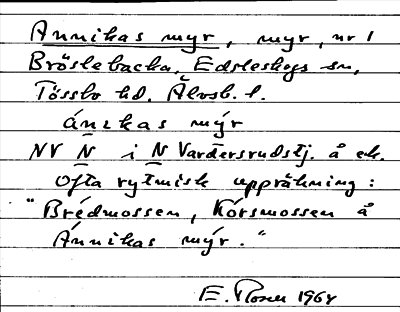 Annikas myr, myr, nr 1
Bröstebacka, Edsleskogs sn,
Tössbo hd. Älvsb. l.
ánikas mýr
NV N i N Vardersrudstj. å ek.
Ofta rytmisk uppräkning:
"Brédmossen, Kórsmossen å
Ánnikas mýr."
E. 1964